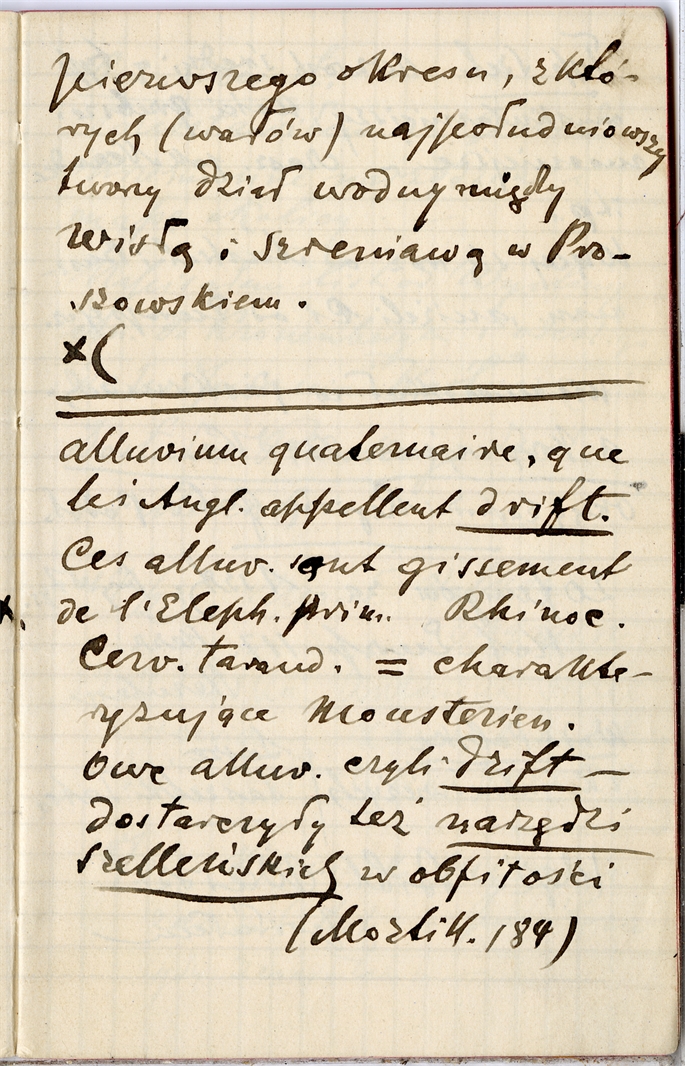 pierwszego okresu, z któ-
rych (wałów) najpołudniowszy
tworzy dział wodny między
Wisłą i Szreniawą w Pro-
szowskiem.
x(
alluvium quaternaire, que
les Angl. appellent drift.
Ces alluv. sont gissement
x. de l'Eleph. prim. Rhinoc.
Cerv. tarand. = charakte-
ryzujące Mousterien.
Owe alluv. czyli drift —
dostarczyły też narzędzi
szelleńskich w obfitości
(Mortill. 184)